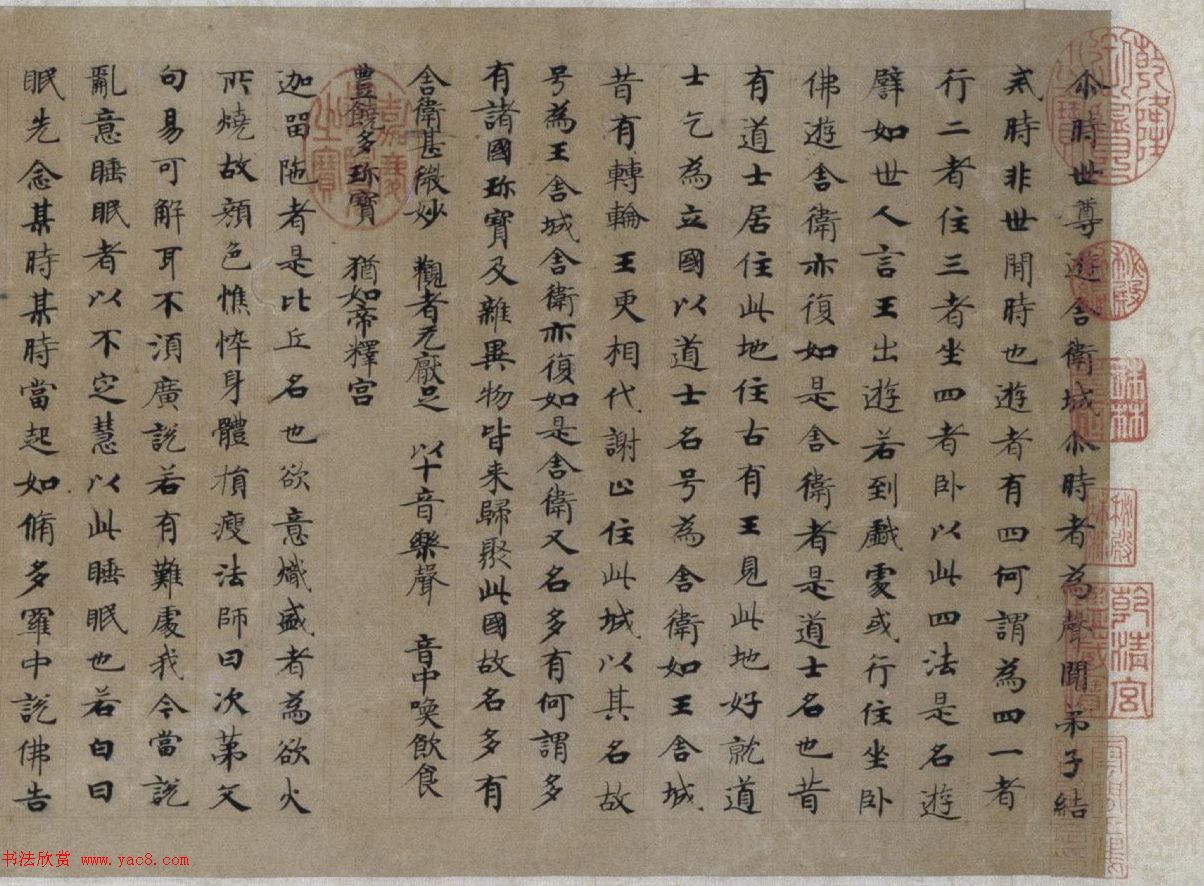 尒時世尊遊舍衛城尒時者為聲聞弟子結
戒時非世間時也遊者有四何謂為四一者
行二者住三者坐四者卧以此四法是名遊
譬如世人言王出遊若到戲處或行住坐卧
佛遊舍衛亦復如是舍衛者是道士名也昔
有道士居住此地住古有王見此地好就道
士乞為立國以道士名号為舍衛如王舍城
昔有轉輪王更相代謝止住此城以其名故
号為王舍城舍衛亦復如是舍衛又名多有何謂多
有諸國珎寶及雜異物皆来歸聚此國故名多有
舍衛甚微妙 觀者无厭足 以十音樂聲 音中喚飲食
豊饒多珎寶 猶如帝釋宮
迦留陁者是比丘名也欲意熾盛者為欲火
所燒故顔色憔悴身體損瘦法師曰次第文
句易可解耳不須廣說若有難處我今當說
亂意睡眠者以不定慧以此睡眠也若白曰
眠先念某時某時當起如脩多羅中說佛告
乾隆御覽之寶
嘉慶御覽之寶
乾清宮鑒藏寶
秘殿珠林
書法欣赏 www.yac8.com